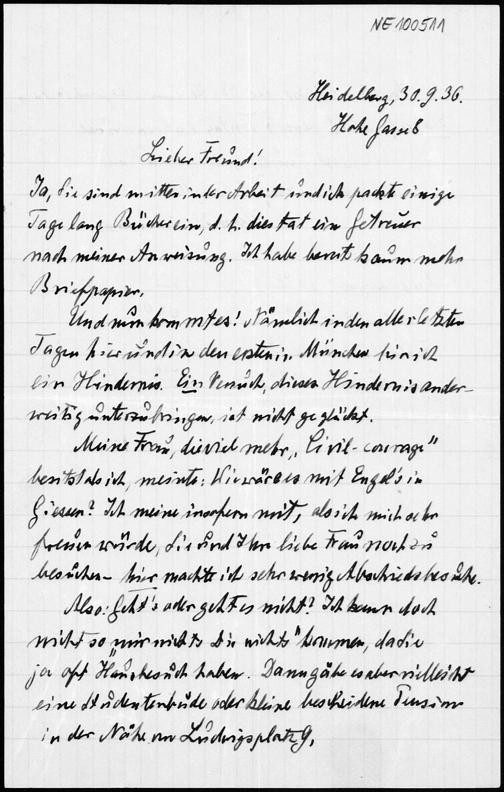 NE100511
Heidelberg, 30.9.36.
Hohe Gasse 6
Lieber Freund!
Ja, Sie sind mitten in der Arbeit und ich packe einige
Tage lang Bücher ein, d. h. dies tat ein Getreuer
nach meiner Anweisung. Ich habe bereits kaum mehr
Briefpapier.
Und nun kommt es! Nämlich in den allerletzten
Tagen hier und in den ersten in München bin ich
ein Hindernis. Ein Versuch, dieses Hindernis ander-
weitig unterzubringen, ist nicht geglückt.
Meine Frau, die viel mehr „Civil-courage"
besitzt als ich, meinte: Wie wäre es mit Engel's in
Giessen? Ich meine insofern mit, als ich mich sehr
freuen würde, Sie und Ihre liebe Frau noch zu
besuchen – hier machte ich sehr wenig Abschiedsbesuche.
Also: Geht's oder geht es nicht? Ich kann doch
nicht so „mir nichts Dir nichts" kommen, da Sie
ja oft Hausbesuch haben. Dann gäbe es aber vielleicht
eine Studentenbude oder kleine bescheidene Pension
in der Nähe von Ludwigsplatz 9,